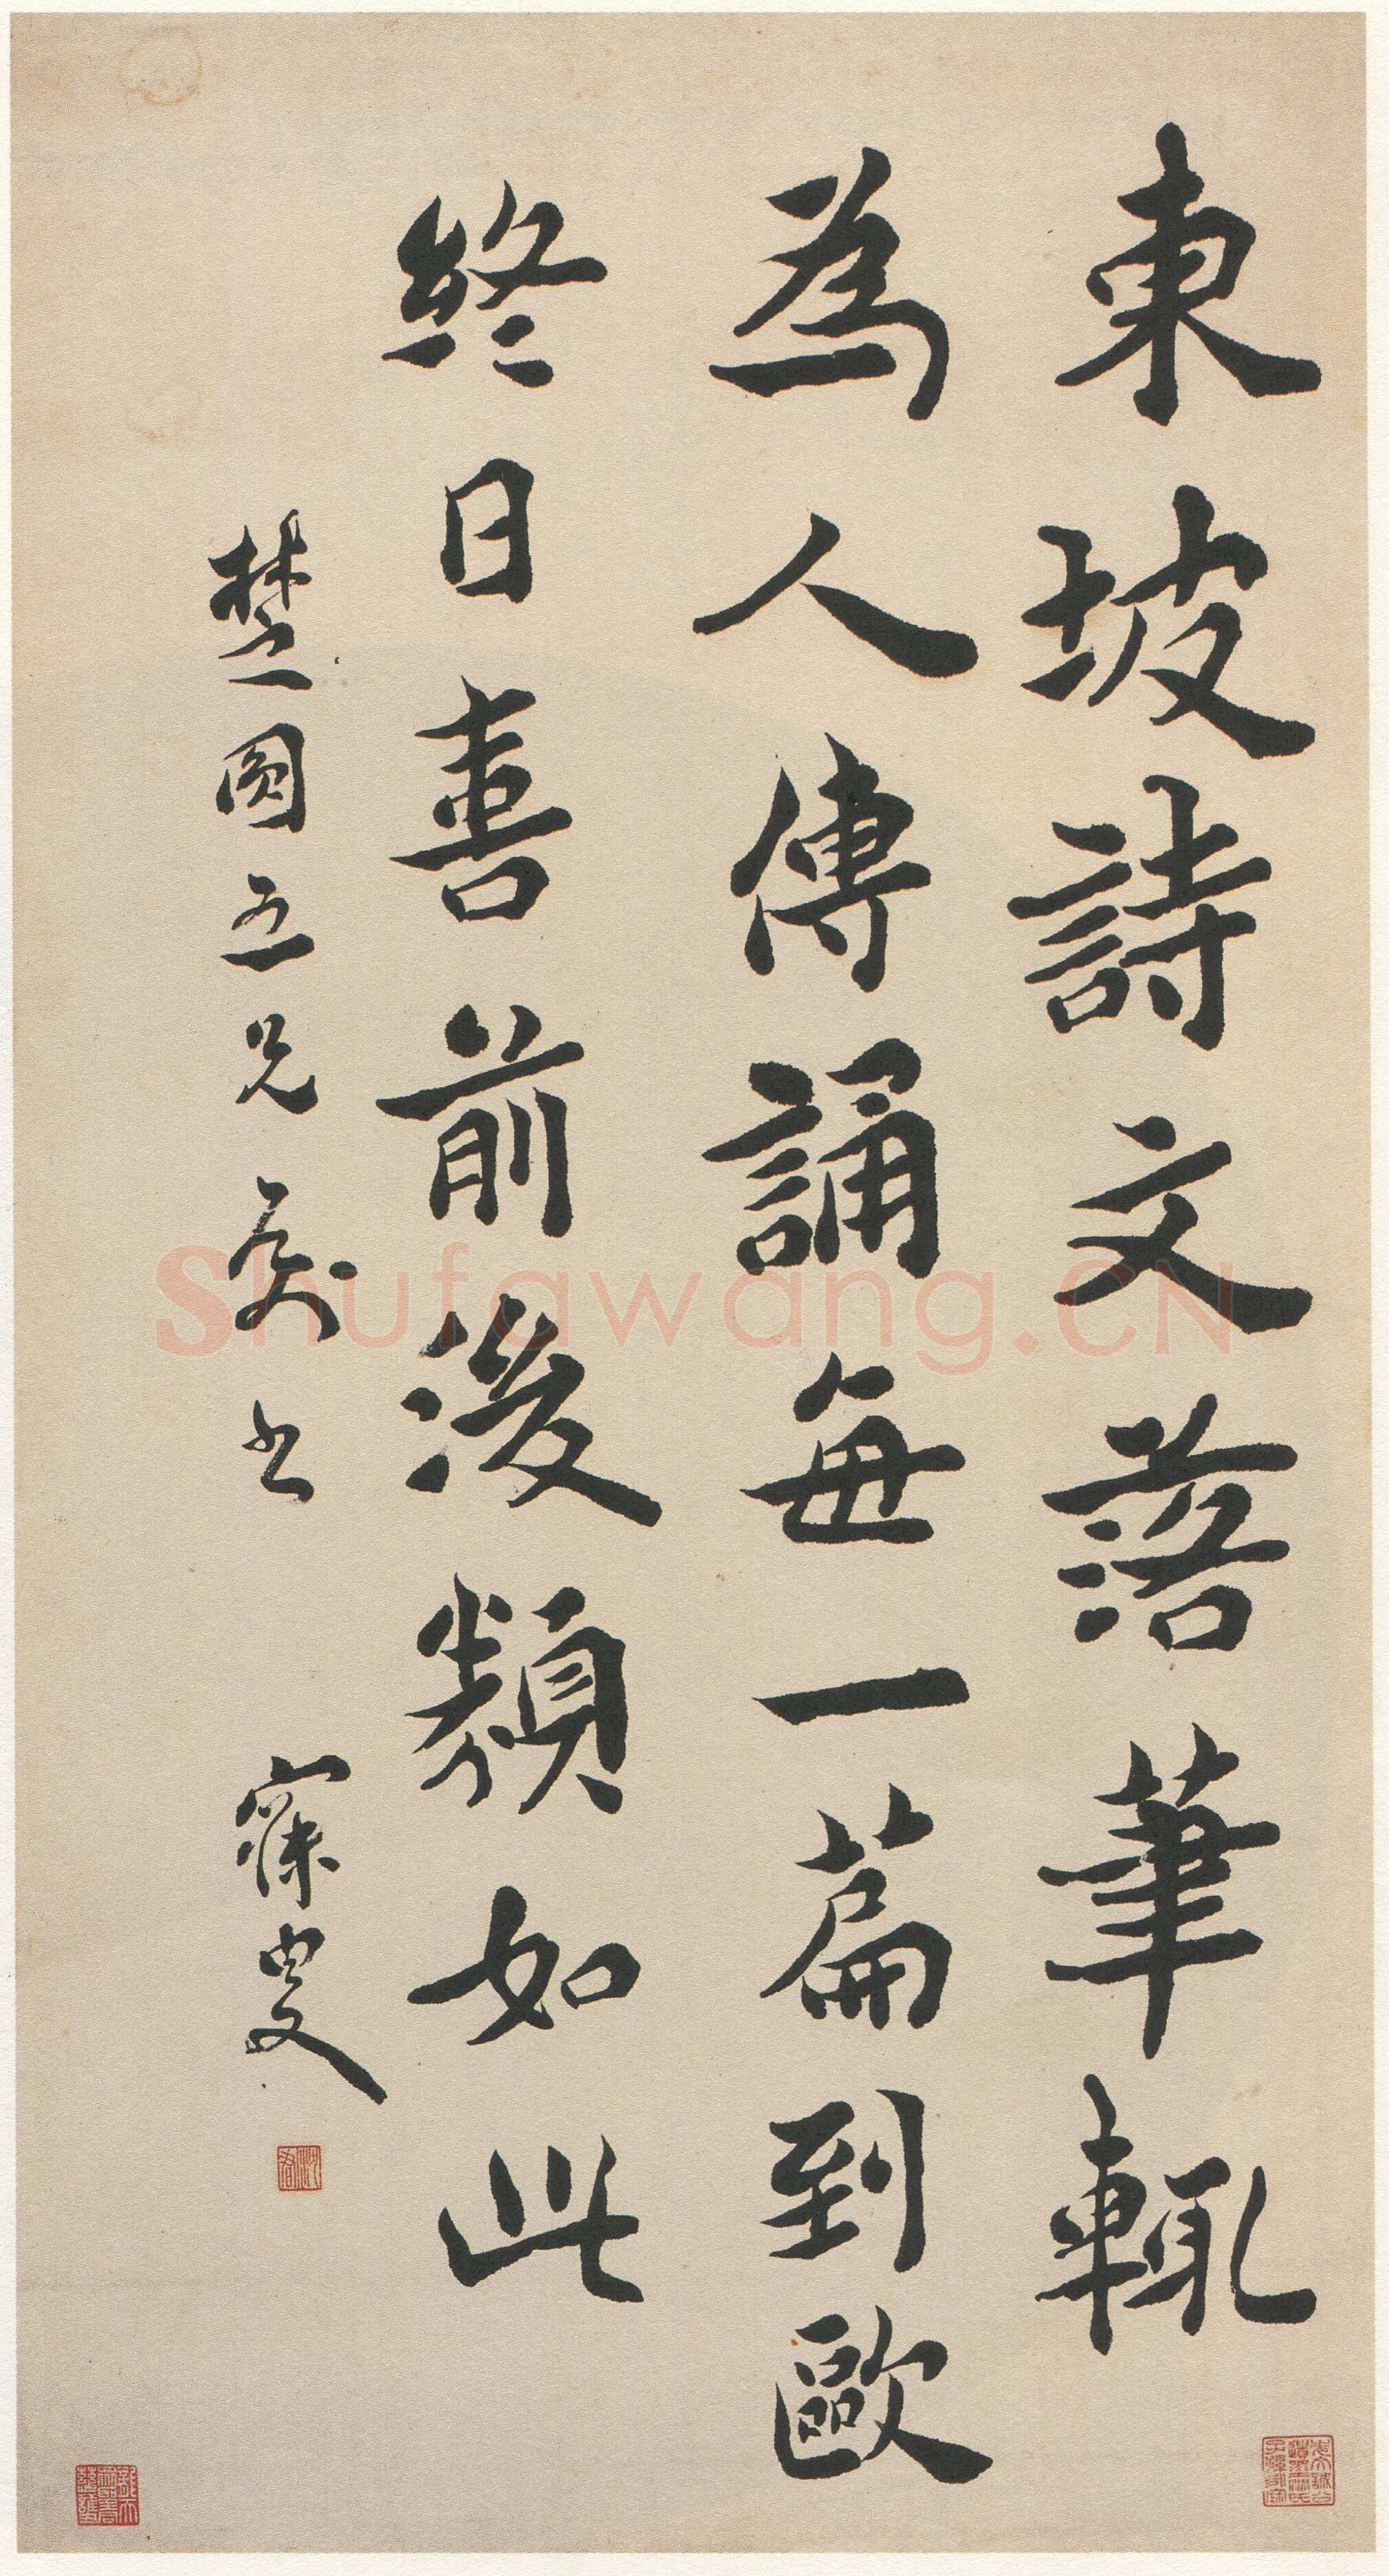 東坡詩文落筆輒
為人傳誦每一篇到歐
終日喜前後類如此
楚圓五兄屬書
寐叟
Shufawang.CN